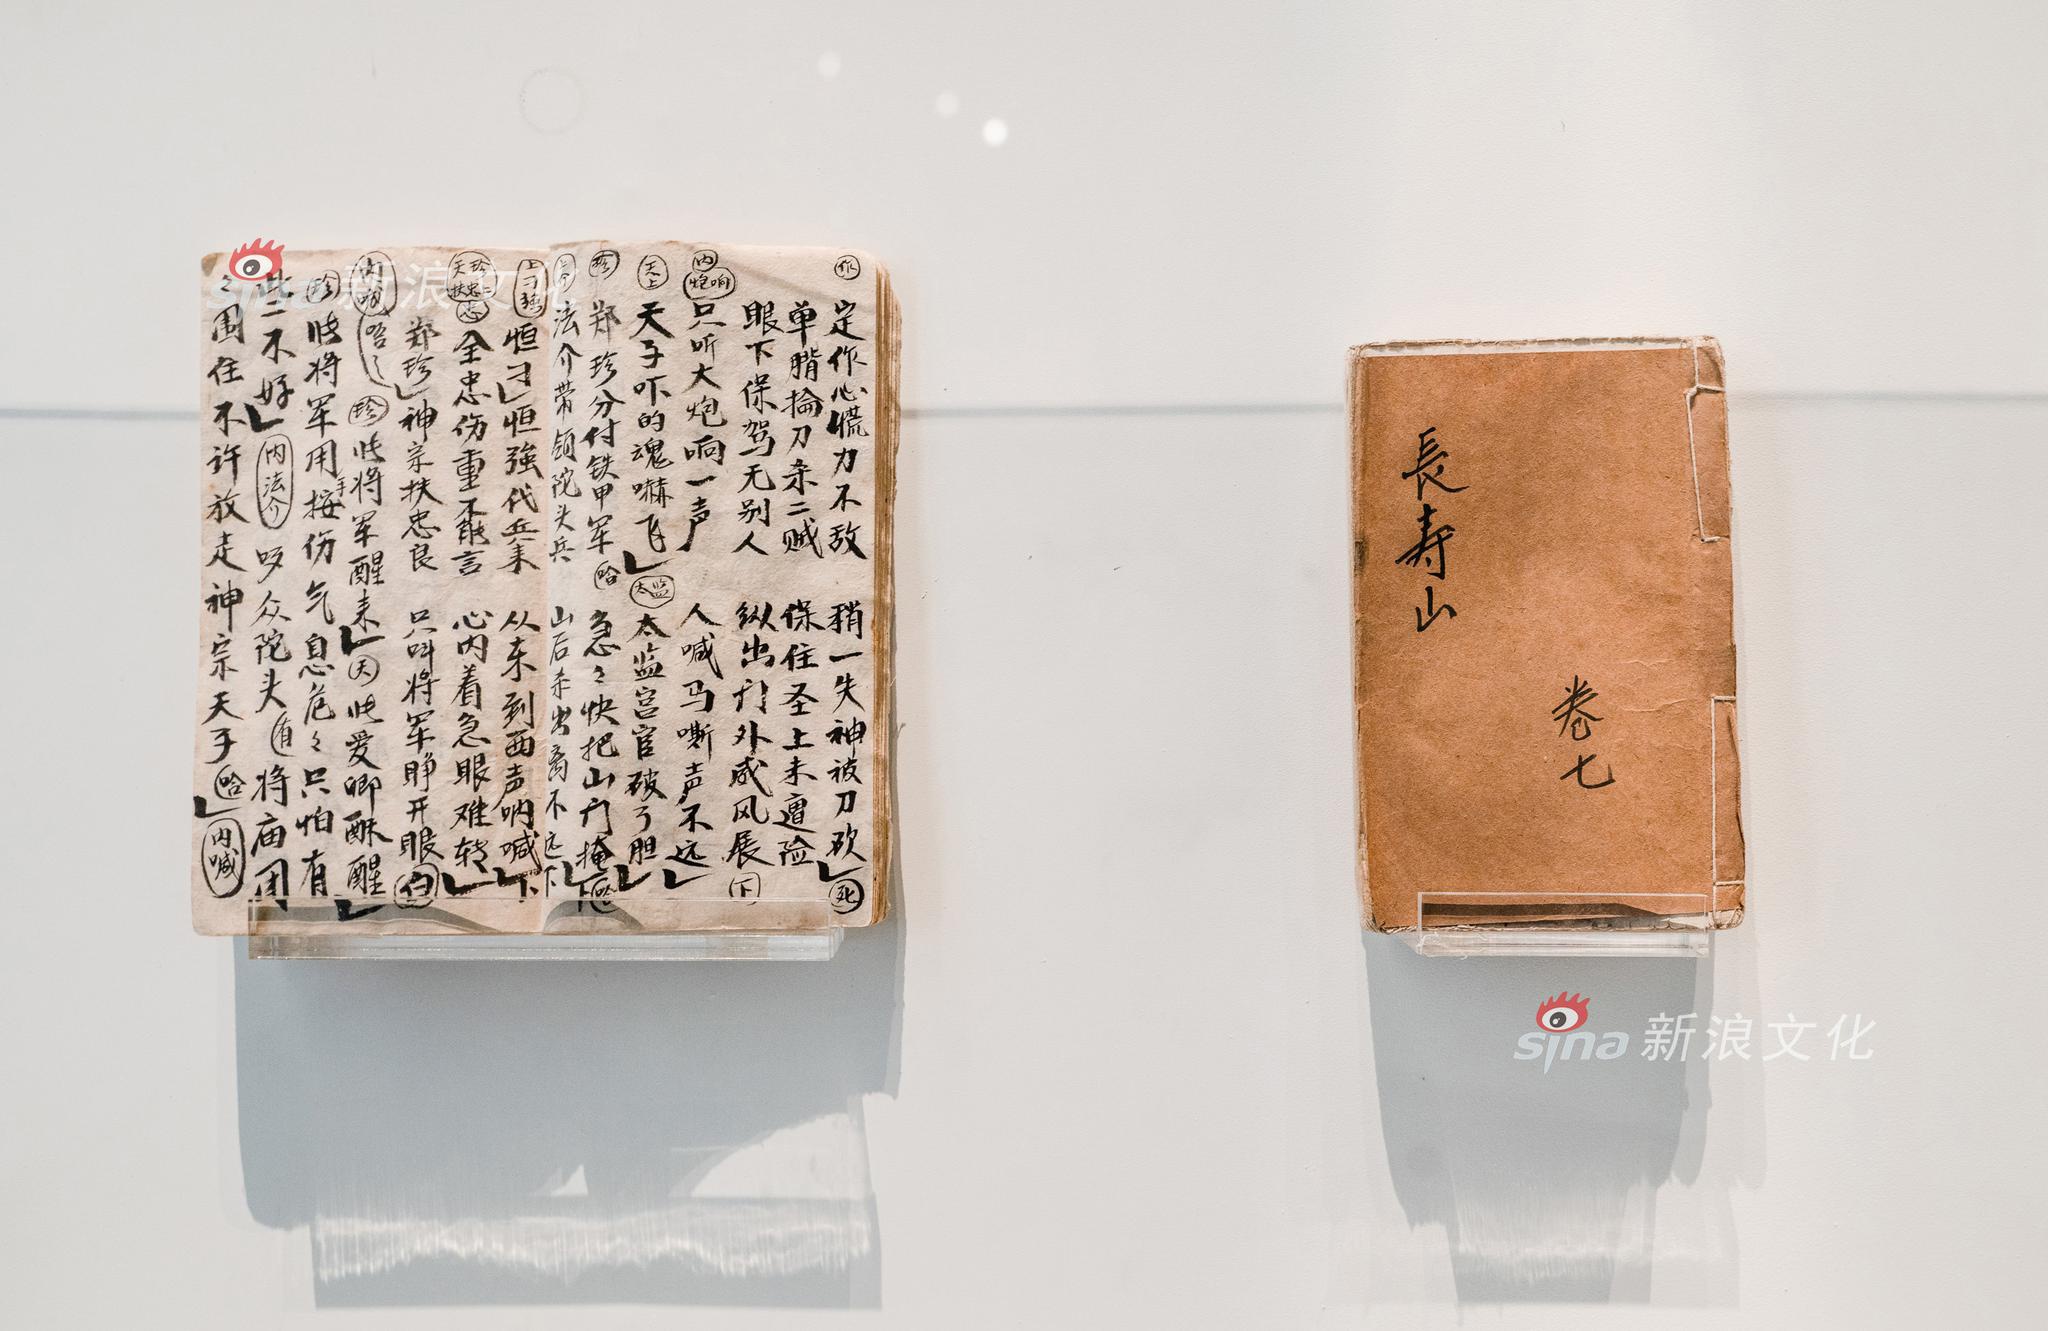 定作心慌力不敌 稍一失神被刀砍 死
单膀抡刀杀二贼 保住圣上未遭险
眼下保驾无别人 纵出门外威风展 下
内炮响 只听大炮响一声 人喊马嘶声不远
天上 天子吓的魂嚇飞 太监 太监宫官破了胆
珍 郑珍分付铁甲军 哈 急々快把山门掩
法介带领陀头兵 山后杀出离不远 下
恒刁 恒強代兵来 从东到西声呐喊 下
全忠伤重不能言 心内着急眼难转
郑珍 神宗扶忠良 只叫将军睁开眼 白
珍 此将军醒来 因 此爱卿酥醒
珍 此将军用手按伤气息危々只怕有
些不好 内法介 哆众陀头 有 将庙团
々围住不许放走神宗天子 哈 内喊
長寿山
卷七
sina 新浪文化
sina 新浪文化